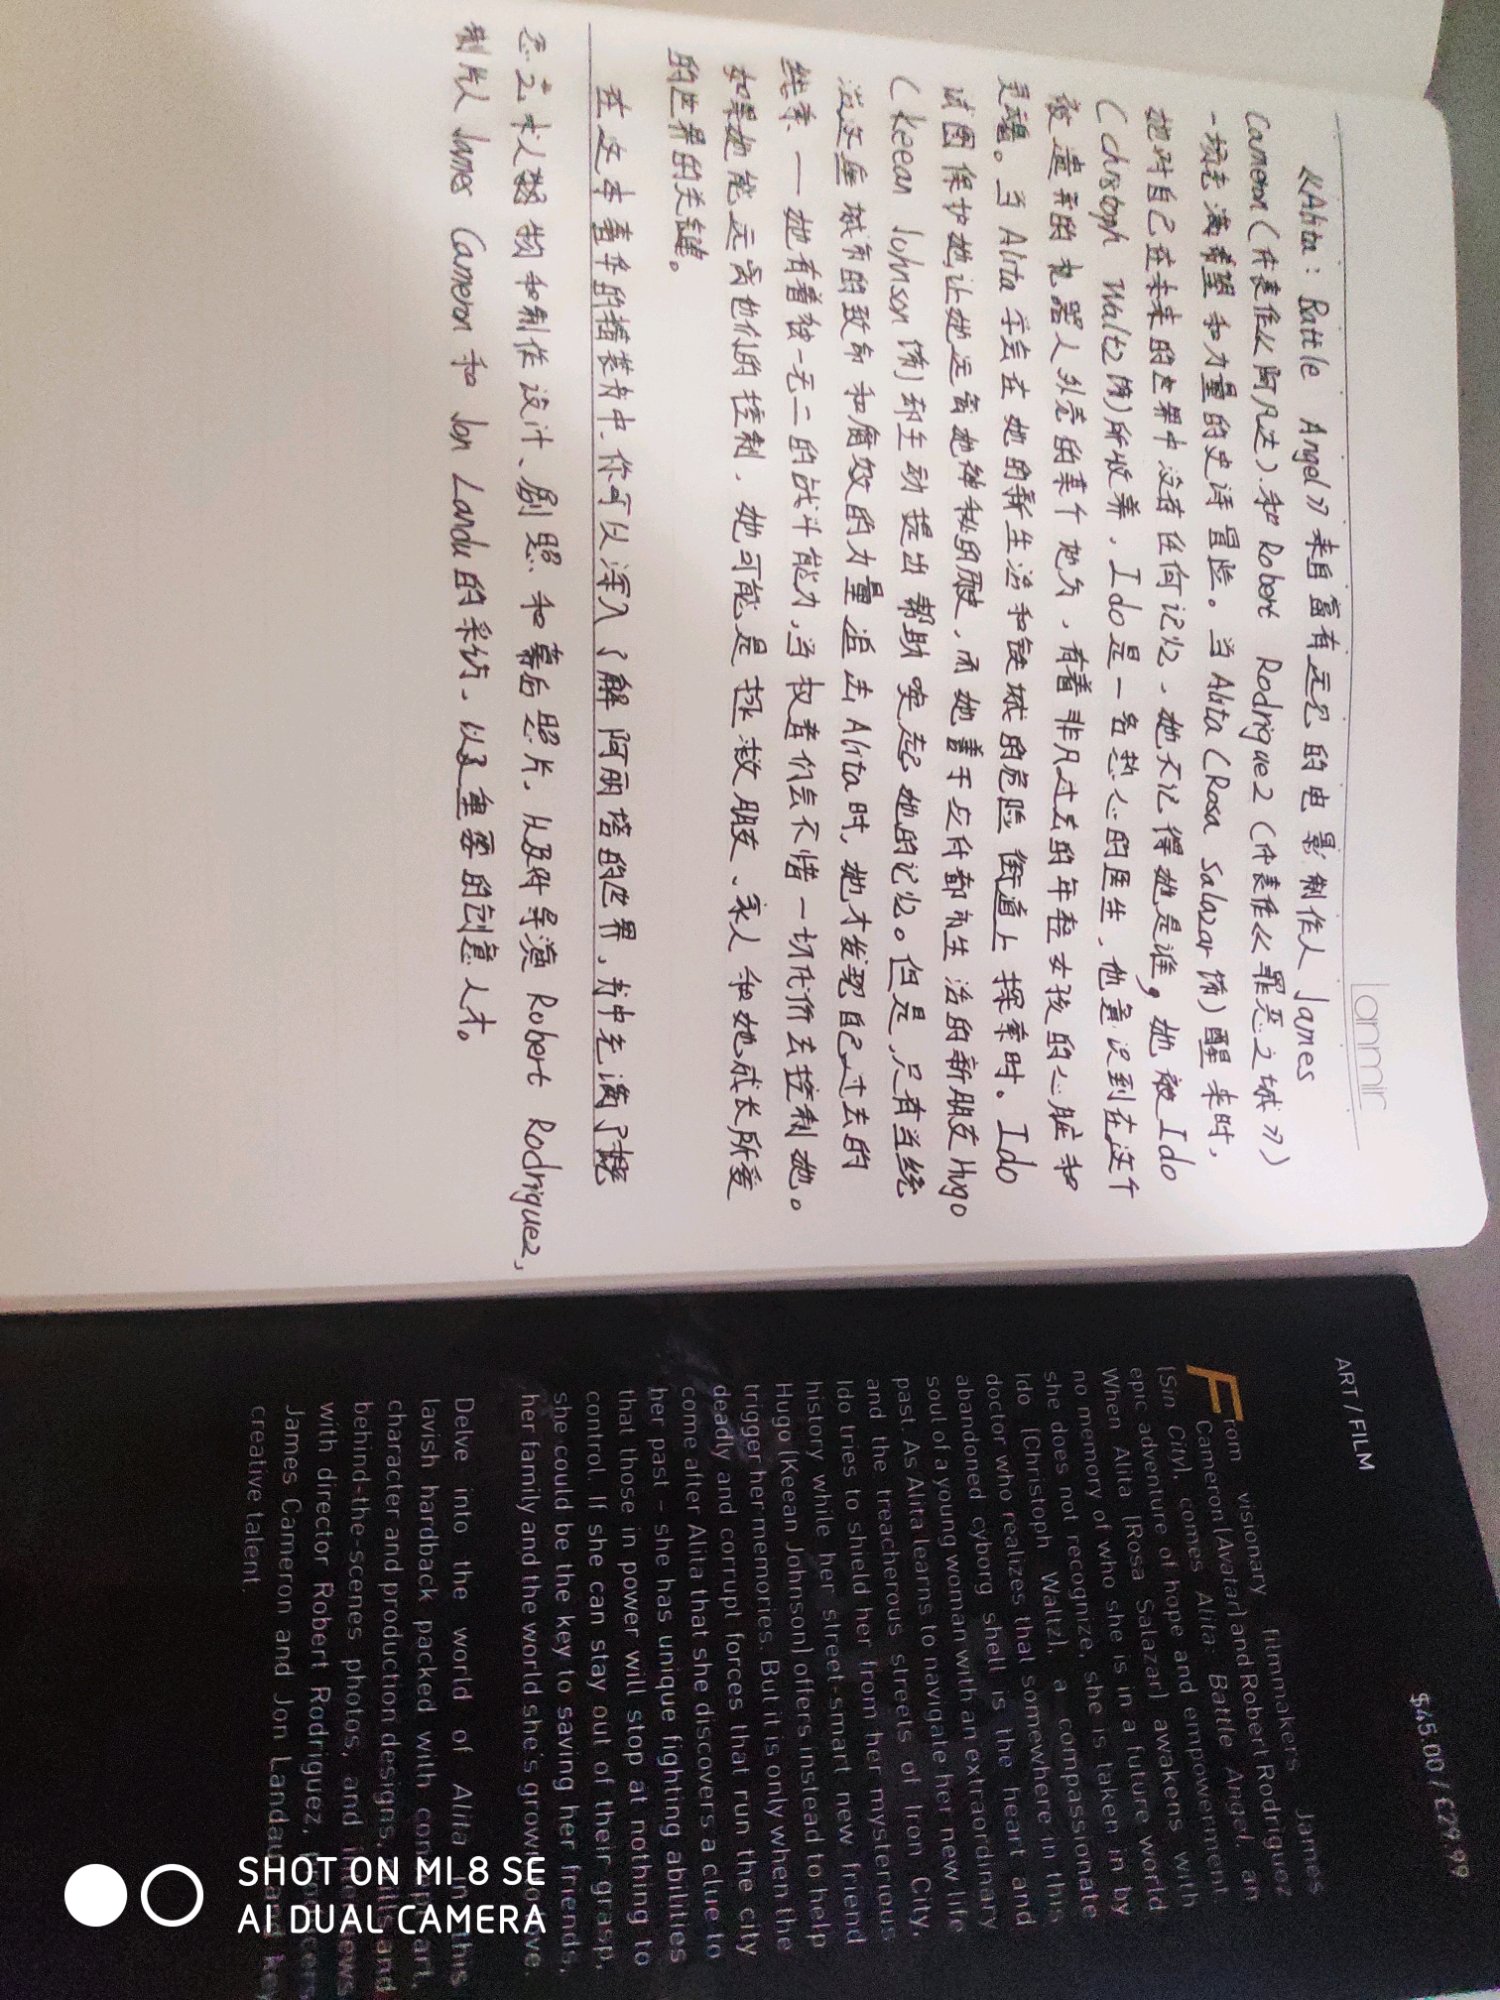 Lanmir
《Alita：Battle Angel》来自富有远见的电影制作人 James
Cameron（代表作《阿凡达》）和 Robert Rodriguez（代表作《罪恶之城》）
一场充满希望和力量的史诗冒险。当Alita（Rosa Salazar 饰）醒来时，
她对自己在未来的世界中没有任何记忆、她不记得她是谁，她被Ido
（Christoph Waltz饰）所收养，Ido是一名热心的医生、他意识到在这个
被遗弃的机器人外壳的某个地方，有着非凡过去的年轻女孩的心脏和
灵魂。当Alita学会在她的新生活和铁城的危险街道上探索时。Ido
试图保护她让她远离她神秘的历史，而她善于应付都市生活的新朋友Hugo
（Keean Johnson 饰）却主动提出帮助唤起她的记忆。但是，只有当统
治这座城市的致命和腐败的力量追击Alita时，她才发现自己过去的
线索——她有着独一无二的战斗能力，当权者们会不惜一切代价去控制她。
如果她能远离他们的控制，她可能是拯救朋友、家人和她成长所爱
的世界的关键。
在这本豪华的精装书中、你可以深入了解阿丽塔的世界，书中充满了概
念艺术人物和制作设计、剧照和幕后照片，以及对导演 Robert Rodriguez，
制片人 James Cameron 和 Jon Landu的采访、以及重要的创意人才。
ART / FILM
$45.00 / £29.99
From visionary filmmakers James
Cameron (Avatar) and Robert Rodriguez
(Sin City), comes Alita: Battle Angel, an
epic adventure of hope and empowerment.
When Alita (Rosa Salazar) awakens with
no memory of who she is in a future world
she does not recognize, she is taken in by
Ido (Christoph Waltz), a compassionate
doctor who realizes that somewhere in this
abandoned cyborg shell is the heart and
soul of a young woman with an extraordinary
past. As Alita learns to navigate her new life
and the treacherous streets of Iron City,
Ido tries to shield her from her mysterious
history while her street-smart new friend
Hugo (Keean Johnson) offers instead to help
trigger her memories. But it is only when the
deadly and corrupt forces that run the city
come after Alita that she discovers a clue to
her past – she has unique fighting abilities
that those in power will stop at nothing to
control. If she can stay out of their grasp,
she could be the key to saving her friends,
her family and the world she's grown to love.
Delve into the world of Alita in this
lavish hardback packed with concept art,
character and production designs, stills and
behind-the-scenes photos, and interviews
with director Robert Rodriguez, producers
James Cameron and Jon Landau and key
creative talent.
SHOT ON MI 8 SE
AI DUAL CAMERA